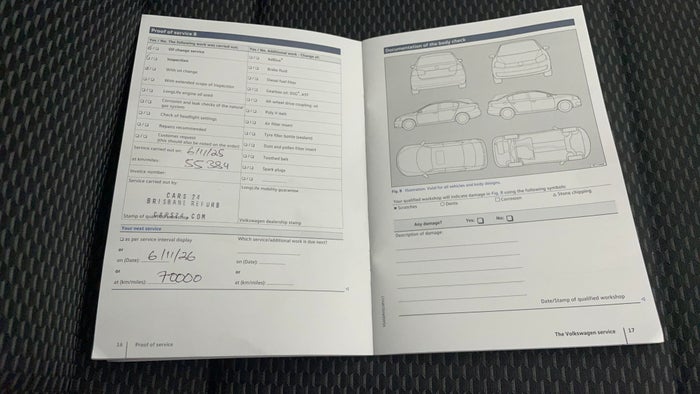 Proof of service 8
Yes / No The following work was carried out:
Oil change service
Inspection
With oil change
With extended scope of inspection
LongLife engine oil used
Corrosion and leak checks of the natural
gas system
Check of headlight settings
Repairs recommended
Customer request
(this should also be noted on the order)
Service carried out on: 6/11/25
at km/miles: 55384
Invoice number:
Service carried out by:
CARS 24
BRISBANE REFURB
CARS24.COM
Stamp of qualified workshop
Yes / No Additional work - Change of:
AdBlue®
Brake fluid
Diesel fuel filter
Gearbox oil: DSG®, ATF
All-wheel drive coupling: oil
Poly V-belt
Air filter insert
Tyre filler bottle (sealant)
Dust and pollen filter insert
Toothed belt
Spark plugs
LongLife mobility guarantee
Volkswagen dealership stamp
Your next service
as per service interval display
or
on (Date): 6/11/26
or
at (km/miles): 70000
Which service/additional work is due next?
on (Date):
or
at (km/miles):
16 Proof of service
Documentation of the body check
Fig. 8 Illustration: Valid for all vehicles and body designs.
Your qualified workshop will indicate damage in Fig. 8 using the following symbols:
× Scratches ○ Dents □ Corrosion △ Stone chipping
Any damage? Yes: No:
Description of damage:
Date/Stamp of qualified workshop
The Volkswagen service 17